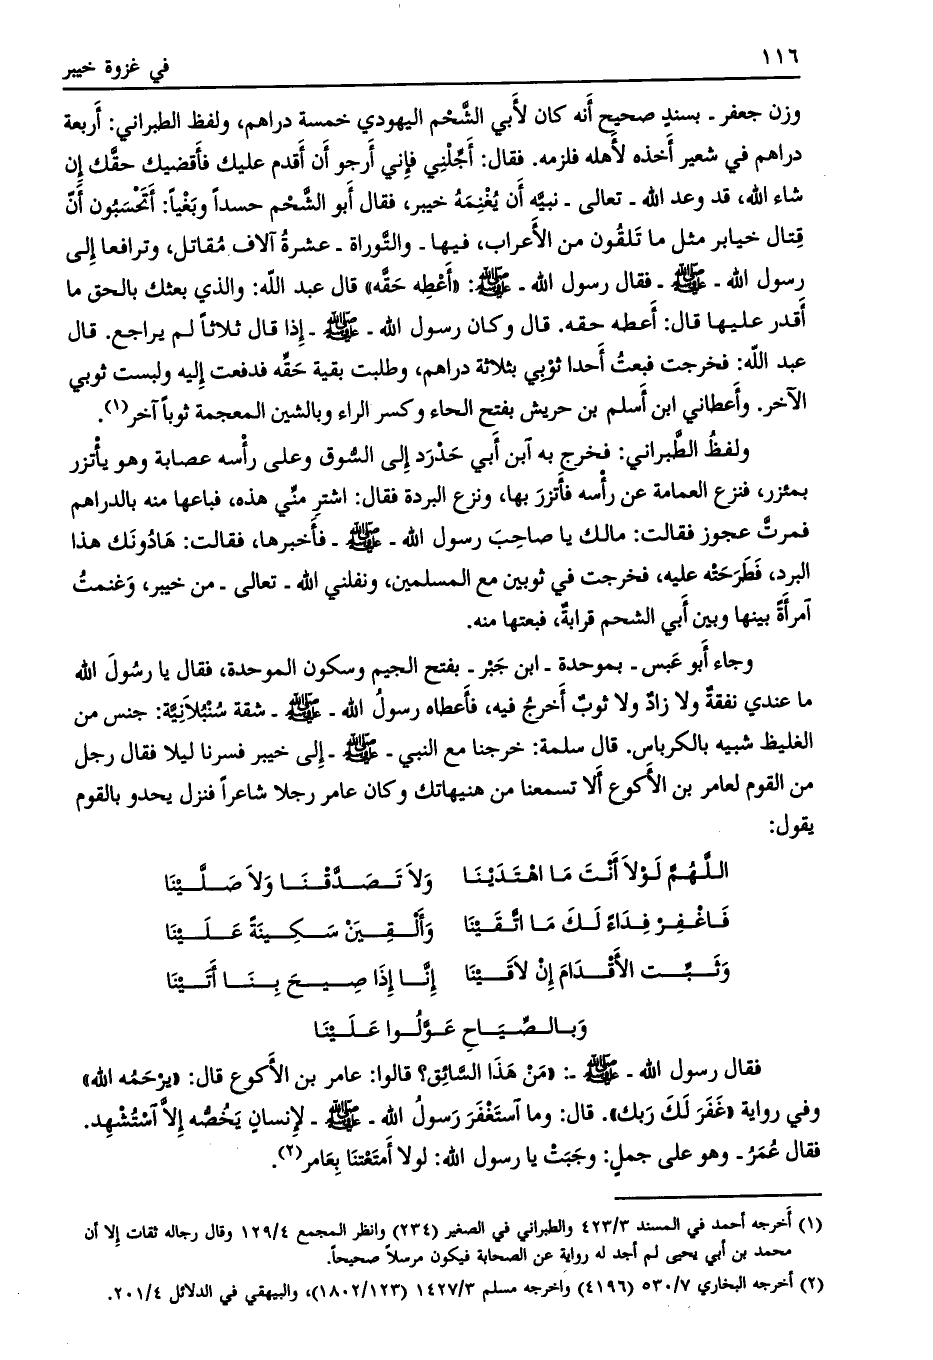 ١١٦
في غزوة خيبر
وزن جعفر ـ بسندٍ صحيح أَنه كان لأَبي الشَّحْم اليهودي خمسة دراهم، ولفظ الطبراني: أَربعة
دراهم في شعير أَخذه لأَهله فلزمه. فقال: أَجِّلْنِي فإِني أَرجو أَن أَقدم عليك فأَقضيك حقَّك إِن
شاء الله، قد وعد الله ـ تعالى ـ نبيَّه أَن يُغْنِمَهُ خيبر، فقال أَبو الشَّحْم حسداً وبَغْياً: أَتَحْسَبُون أَنّ
قِتال خيابر مثل ما تَلقُون من الأَعراب، فيها ـ والتَّوراة ـ عشرةُ آلاف مُقاتل، وترافعا إِلى
رسول الله ـ ﷺ ـ فقال رسول الله ـ ﷺ: «أَعْطِه حَقَّه» قال عبد اللّه: والذي بعثك بالحق ما
أَقدر عليها قال: أَعطه حقه. قال وكان رسول الله ـ ﷺ ـ إِذا قال ثلاثاً لم يراجع. قال
عبد اللّه: فخرجت فبعتُ أَحدا ثَوْبِي بثلاثة دراهم، وطلبت بقية حَقِّه فدفعت إِليه ولبست ثوبي
الآخر. وأَعطاني ابن أَسلم بن حريش بفتح الحاء وكسر الراء وبالشين المعجمة ثوباً آخر(١).
ولفظُ الطَّبراني: فخرج به ٱبن أَبي حَدْرَد إِلى السُّوق وعلى رأْسه عصابة وهو يأْتزر
بمئزر، فنزع العمامة عن رأْسه فأَتزرَ بها، ونزع البردة فقال: اشترِ منِّي هذه، فباعها منه بالدراهم
فمرتَّ عجوز فقالت: مالك يا صاحِبَ رسول الله ـ ﷺ ـ فأَخبرها، فقالت: هَادُونَك هذا
البرد، فَطَرَحَتْه عليه، فخرجت في ثوبين مع المسلمين، ونفلني الله ـ تعالى ـ من خيبر، وَغنمتُ
ٱمرأَةً بينها وبين أَبي الشحم قرابةٌ، فبعتها منه.
وجاء أَبو عَبس ـ بموحدة ـ ابن جَبْر ـ بفتح الجيم وسكون الموحدة، فقال يا رسُولَ الله
ما عندي نفقةٌ ولا زادٌ ولا ثوبٌ أَخرجُ فيه، فأَعطاه رسولُ الله ـ ﷺ ـ شقة سُنْبُلاَنِيَّة: جنس من
الغليظ شبيه بالكرباس. قال سلمة: خرجنا مع النبي ـ ﷺ ـ إِلى خيبر فسرنا ليلا فقال رجل
من القوم لعامر بن الأَكوع أَلا تسمعنا من هنيهاتك وكان عامر رجلا شاعراً فنزل يحدو بالقوم
يقول:
اللَّهُمَّ لَوْلاَ أَنْتَ مَا اهْتَدَيْنَا وَلاَ تَصَدَّقْنَا وَلاَ صَلَّيْنَا
فَاغْفِرْ فِدَاءً لَكَ مَا اتَّقَيْنَا وَأَلْقِيَنْ سَكِينَةً عَلَيْنَا
وَثَبِّت الأَقْدَامَ إِنْ لاَقَيْنَا إِنَّا إِذَا صِيحَ بِنَا أَتَيْنَا
وَبِالصِّيَاحِ عَوَّلُوا عَلَيْنَا
فقال رسول الله ـ ﷺ ـ: «مَنْ هَذَا السَّائِق؟ قالوا: عامر بن الأَكوع قال: «يرْحَمُه الله»
وفي رواية «غَفَرَ لَكَ رَبك». قال: وما ٱستَغْفَرَ رَسولُ الله ـ ﷺ ـ لإِنسانٍ يَخُصُّه إِلاَّ ٱسْتُشْهِد.
فقال عُمَرُ ـ وهو على جملٍ: وجَبَتْ يا رسول الله: لولا أَمتَعْتنَا بِعَامر(٢).
(١) أَخرجه أحمد في المسند ٤٢٣/٣ والطبراني في الصغير (٢٣٤) وانظر المجمع ١٢٩/٤ وقال رجاله ثقات إلا أن
محمد بن أبي يحيى لم أجد له رواية عن الصحابة فيكون مرسلاً صحيحاً.
(٢) أخرجه البخاري ٥٣٠/٧ (٤١٩٦) واخرجه مسلم ١٤٢٧/٣ (١٨٠٢/١٢٣)، والبيهقي في الدلائل ٢٠١/٤.